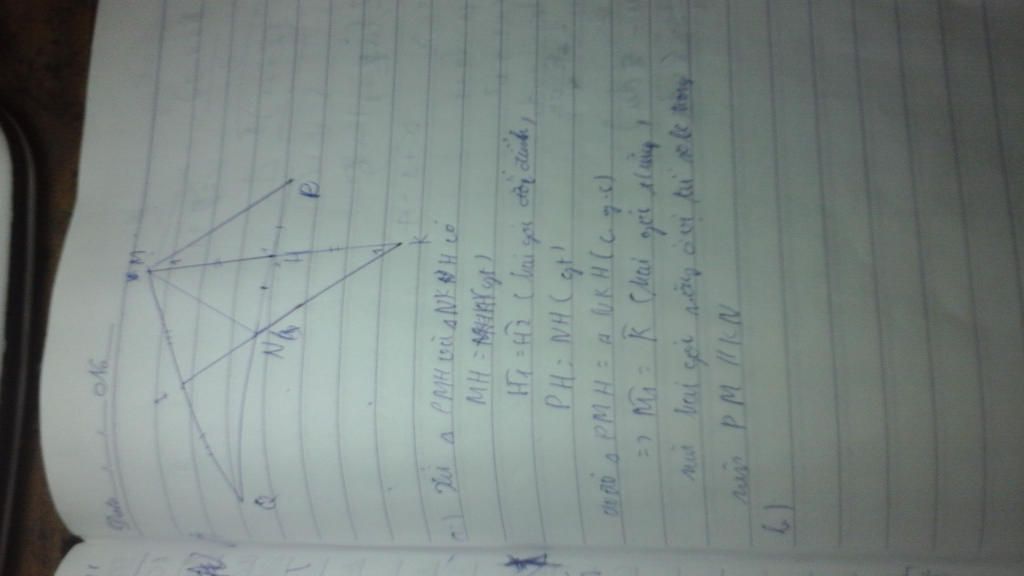 Date No.
M
P
H
K
N
Q
I
a) Xét Δ PMH với Δ NKH có
MH = (gt)
H1 = H2 (hai góc đối đỉnh)
PH = NH (gt)
Δ PMH = Δ NKH (c.g.c)
=> M1 = K (hai góc tương ứng)
mà hai góc ở vị trí so le trong
nên PM // KN
b)